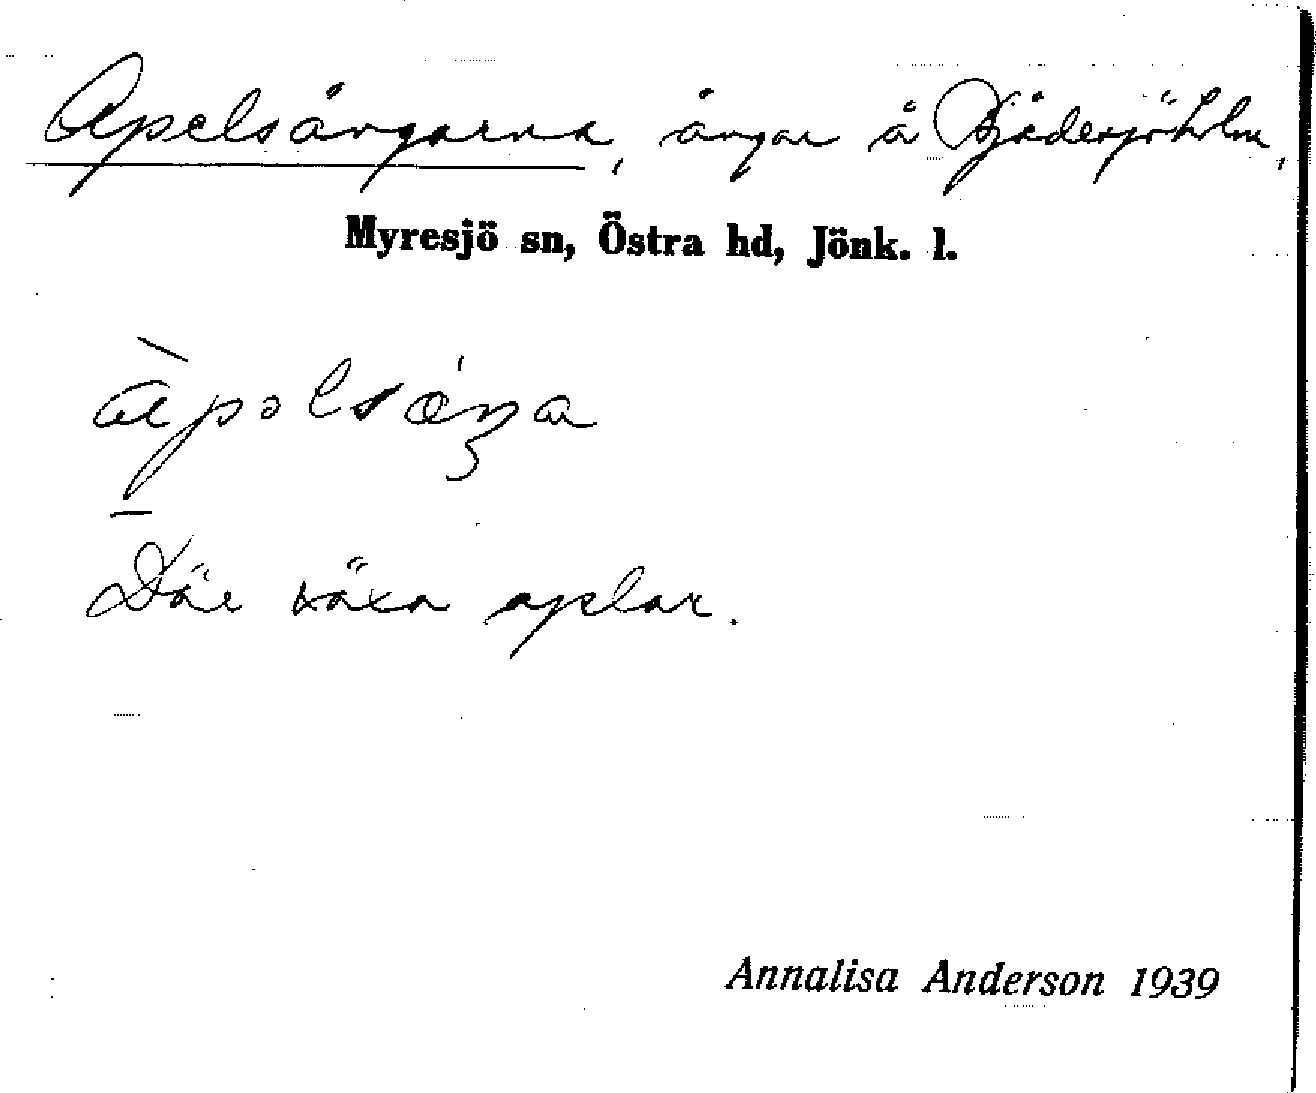 Apelsängarna, ängar å Fjädersjöholm,
Myresjö sn, Östra hd, Jönk. l.
àpəlsáŋa
Där växa aplar.
Annalisa Anderson 1939